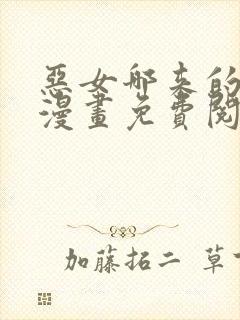 惡女哪来的
漫畫免費閱
加藤拓二 草